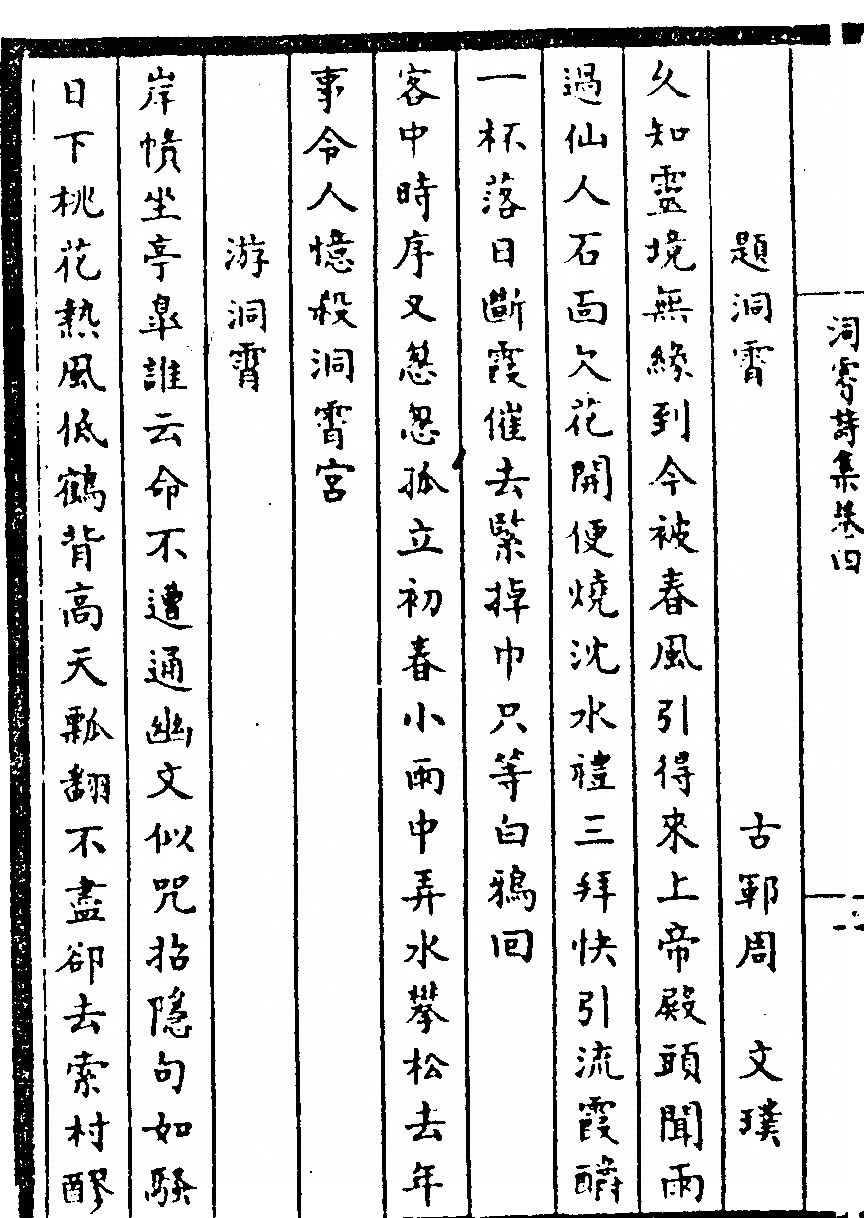 洞霄詩集卷四
二
題洞霄
古鄆周 文璞
久知靈境無緣到今被春風引得來上帝殿頭聞雨
過仙人石面欠花開便燒沈水禮三拜快引流霞釂
一杯落日斷霞催去緊掉巾只等白鴉回
客中時序又怱忽孤立初春小雨中弄水攀松去年
事令人憶殺洞霄宮
游洞霄
岸幘坐亭皐誰云命不遭通幽文似咒招隱句如騷
日下桃花熱風低鶴背高天瓢翻不盡卻去索村醪